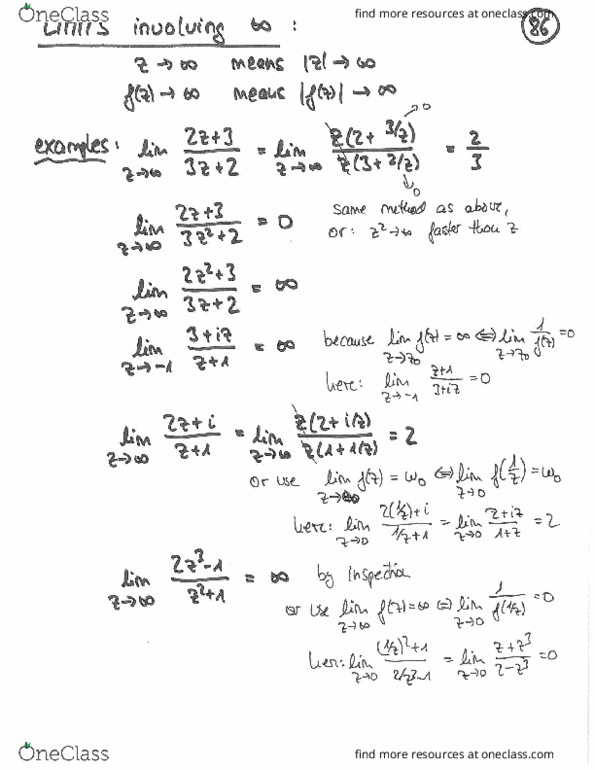 OneClass
find more resources at oneclass.com
Limits involving ∞ :
86
z → ∞ means |z| → ∞
f(z) → ∞ means |f(z)| → ∞
examples: lim_{z→∞} (2z+3)/(3z+2) = lim_{z→∞} z(2+ 3/z)/z(3+ 2/z) = 2/3
→0
→0
lim_{z→∞} (2z+3)/(3z²+2) = 0 same method as above,
or: z²→∞ faster than z
lim_{z→∞} (2z²+3)/(3z+2) = ∞
lim_{z→-1} (3+iz)/(z+1) = ∞ because lim_{z→z₀} f(z) = ∞ ⇔ lim_{z→z₀} 1/f(z) = 0
here: lim_{z→-1} (z+1)/(3+iz) = 0
lim_{z→∞} (2z+i)/(z+1) = lim_{z→∞} z(2+i/z)/z(1+1/z) = 2
or use lim_{z→∞} f(z) = ω₀ ⇔ lim_{z→0} f(1/z) = ω₀
here: lim_{z→0} (2(1/z)+i)/(1/z+1) = lim_{z→0} (2+iz)/(1+z) = 2
lim_{z→∞} (2z³-1)/(z²+1) = ∞ by inspection
or use lim_{z→∞} f(z) = ∞ ⇔ lim_{z→0} 1/f(1/z) = 0
here: lim_{z→0} ((1/z)²+1)/(2/z³-1) = lim_{z→0} (z+z³)/(2-z³) = 0
OneClass
find more resources at oneclass.com